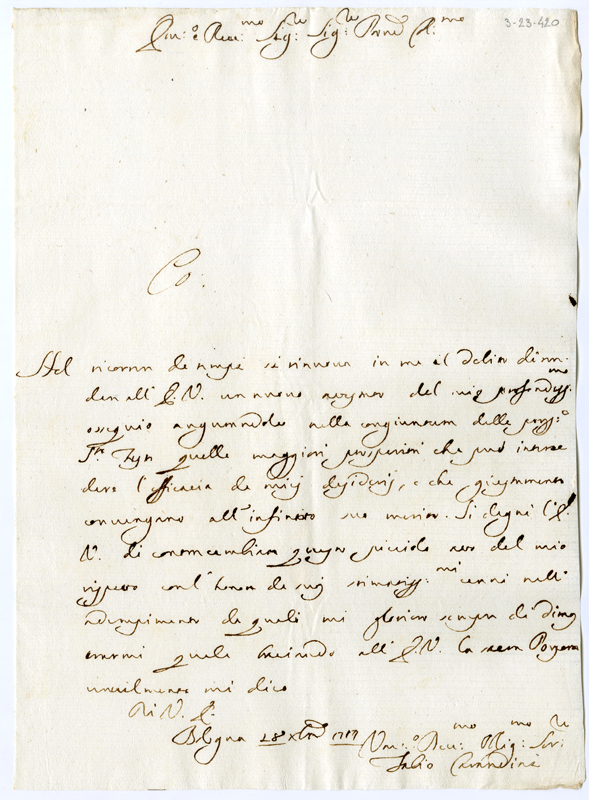 3-23-420
Em: e Reu:mo Sig:re Sig:re Prône C:mo
Co:
Nel ricorrer de tempi si rinnova in me il debito di rin-
der all' E. V. un nuovo del mio profondiss:mo
ossequio augurandole nella congiuntura delle pross:e
S.te Feste quelle maggiori prosperità che può
dare l'efficacia de miei desiderij, e che giustamente
convengano all' infinito suo merito. Si degni l' E.
V. di contracambiare questo picciolo del mio
rispetto con l' honor de suoi stimatiss:mi cenni nell'
adempimento de quali mi glorierò sempre di dimo
strarmi quale baciando all' E. V. la sacra Porpora
umilmente mi dico
Di V. E.
Bologna 28 Xbre 1717
Um:o Deu:mo Oblig:mo Ser:re
Fabio